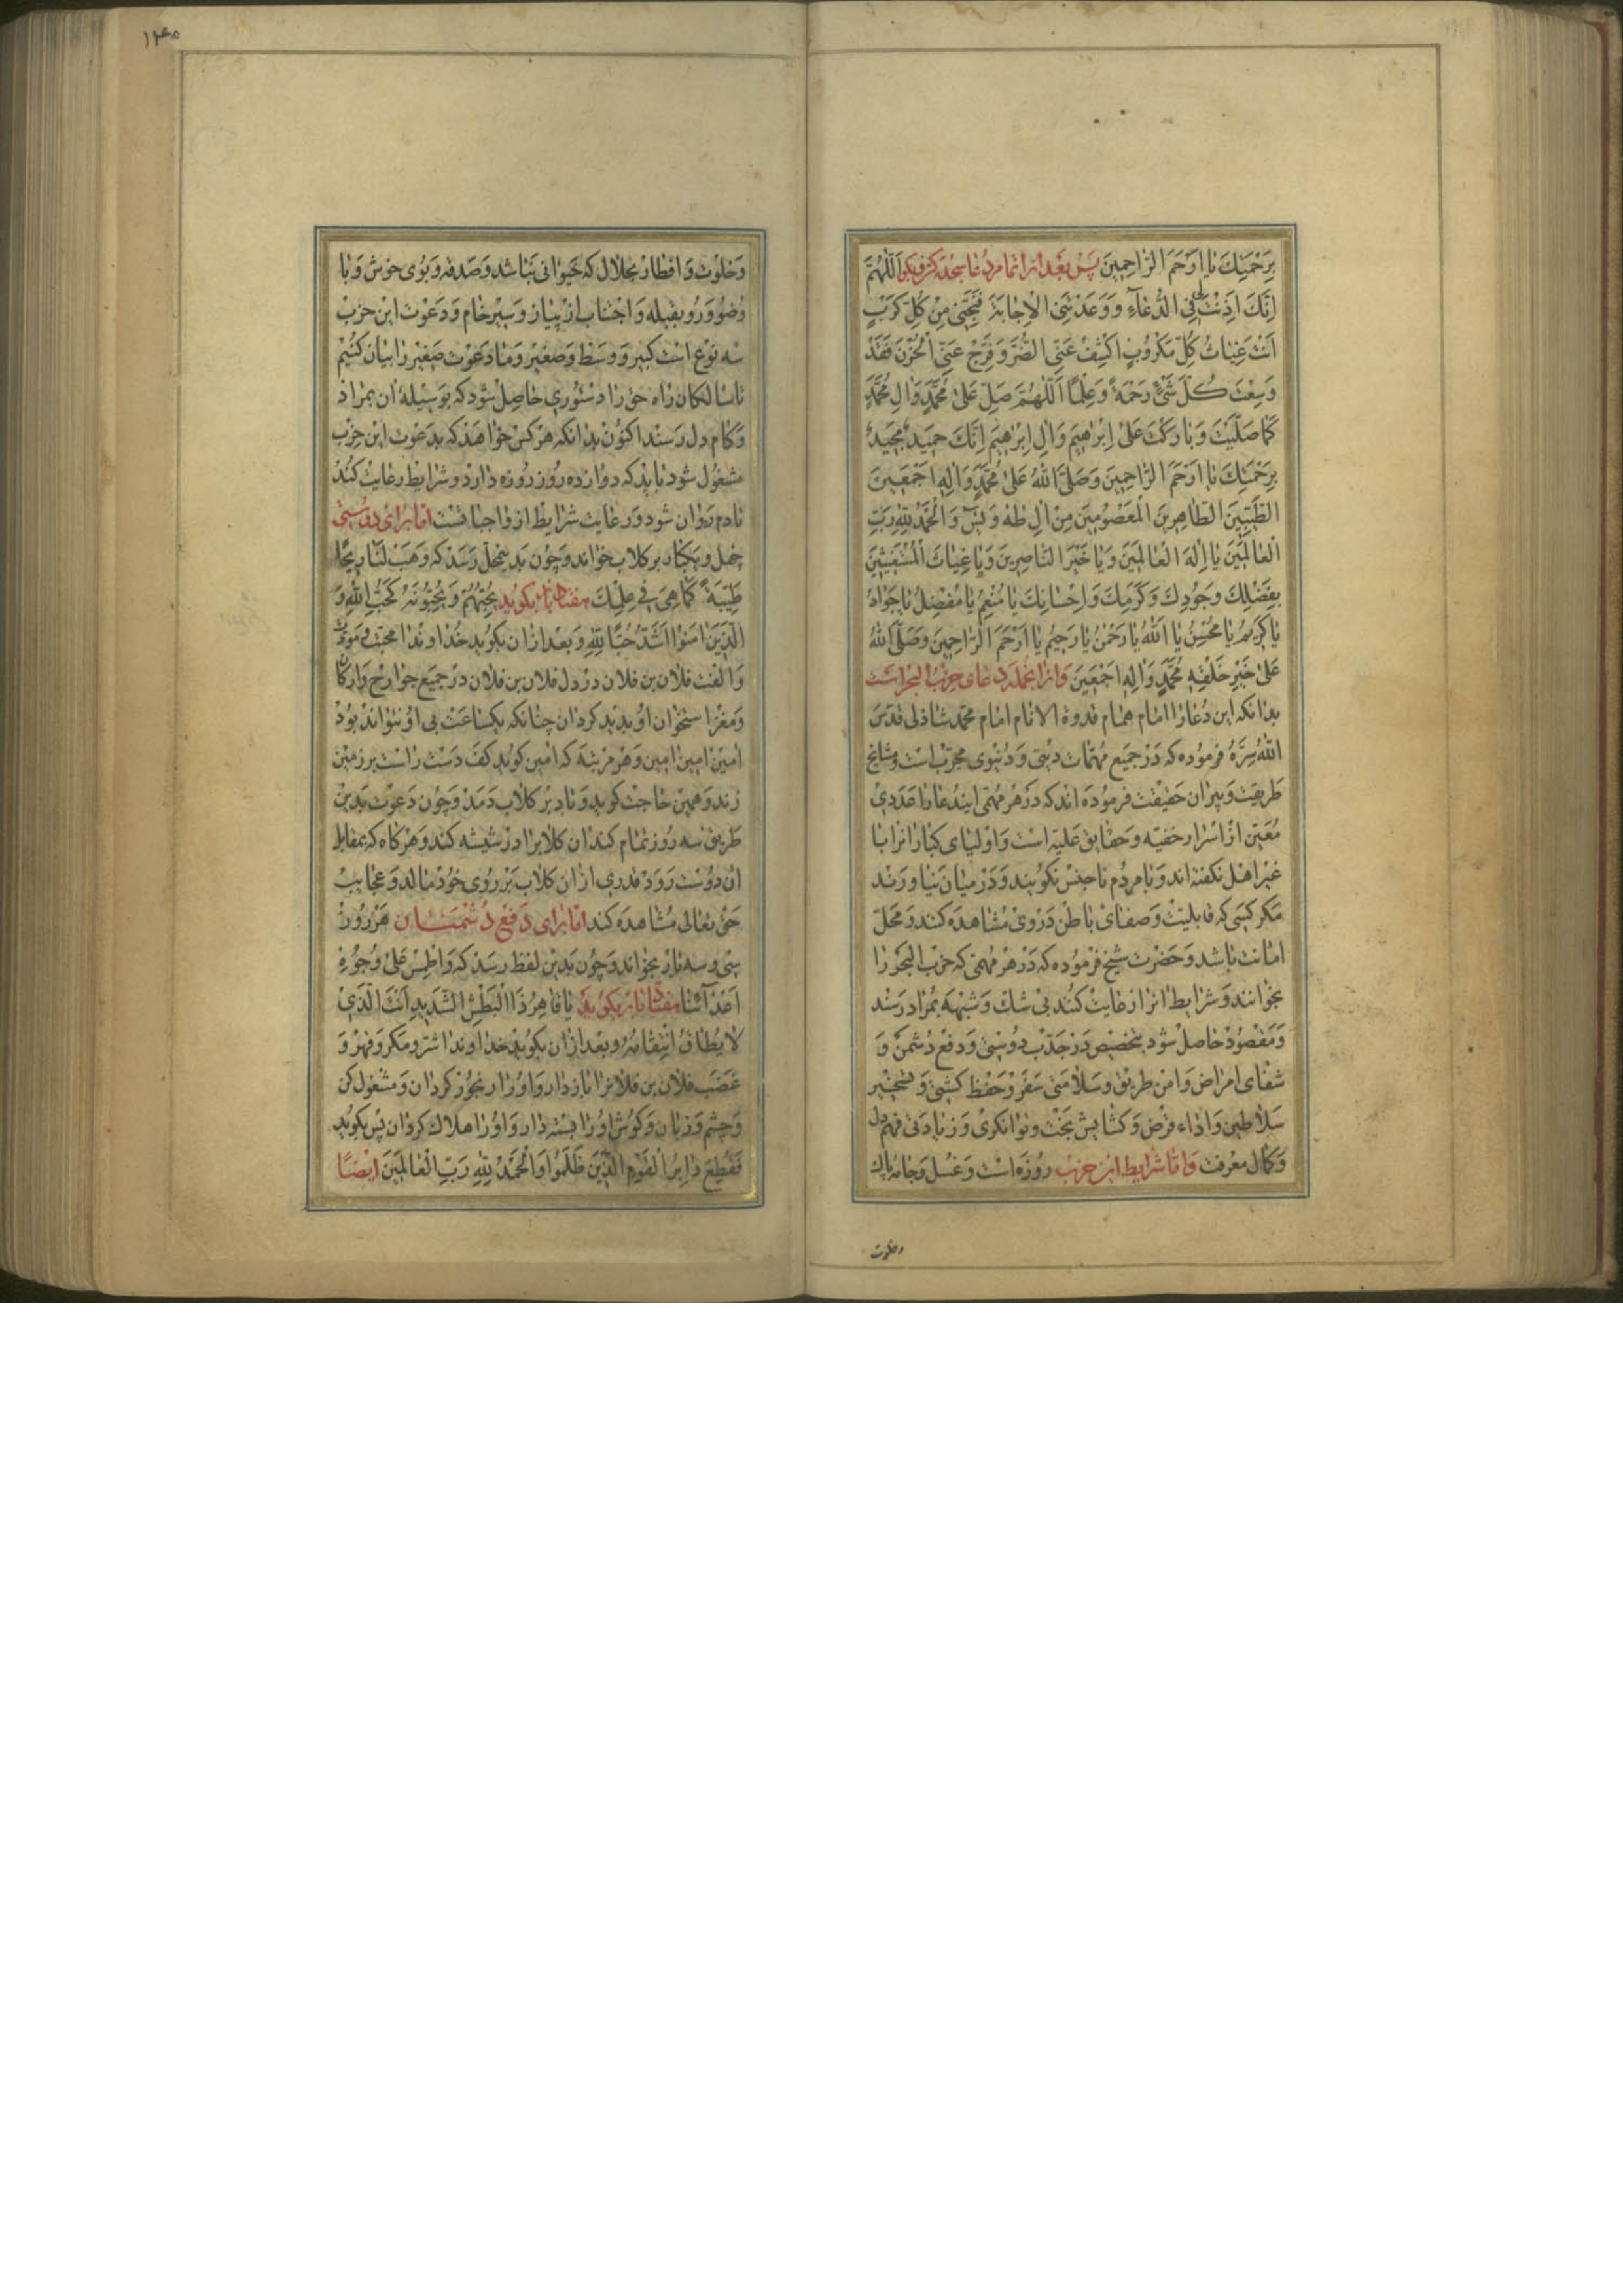 بِرَحْمَتِكَ يٰا اَرْحَمَ الرّٰاحِمينَ پس بعد از اتمام دعا سجده کن و بگو اَللّٰهُمَّ
اِنَّكَ اَذِنْتَ لى فِى الدُّعٰآءِ وَوَعَدْتَنِى الْاِجٰابَةَ فَنَجِّنى مِنْ كُلِّ كَرْبٍ
اَنْتَ غِيٰاثُ كُلِّ مَكْرُوبٍ اكْشِفْ عَنِّى الضُّرَّ وَفَرِّجْ عَنِّى الْحُزْنَ فَقَدْ
وَسِعْتَ كُلَّ شَىْءٍ رَحْمَةً وَعِلْمًا اَللّٰهُمَّ صَلِّ عَلىٰ مُحَمَّدٍ وَاٰلِ مُحَمَّدٍ
كَمٰا صَلَّيْتَ وَبٰارَكْتَ عَلىٰ اِبْرٰهيمَ وَاٰلِ اِبْرٰهيمَ اِنَّكَ حَميدٌ مَجيدٌ
بِرَحْمَتِكَ يٰا اَرْحَمَ الرّٰاحِمينَ وَصَلَّى اللّٰهُ عَلىٰ مُحَمَّدٍ وَاٰلِهِ اَجْمَعينَ
الطَّيِّبينَ الطّٰاهِرينَ الْمَعْصُومينَ مِنْ اٰلِ طٰهٰ وَيٰسٓ وَالْحَمْدُ لِلّٰهِ رَبِّ
الْعٰالَمينَ يٰا اِلٰهَ الْعٰالَمينَ وَيٰا خَيْرَ النّٰاصِرينَ وَيٰا غِيٰاثَ الْمُسْتَغيثينَ
بِفَضْلِكَ وَجُودِكَ وَكَرَمِكَ وَاِحْسٰانِكَ يٰا مُنْعِمُ يٰا مُفْضِلُ يٰا جَوٰادُ
يٰا كَريمُ يٰا مُحْسِنُ يٰا اَللّٰهُ يٰا رَحْمٰنُ يٰا رَحيمُ يٰا اَرْحَمَ الرّٰاحِمينَ وَصَلَّى اللّٰهُ
عَلىٰ خَيْرِ خَلْقِهِ مُحَمَّدٍ وَاٰلِهِ اَجْمَعينَ و از انجمله دعای حزب البحر است
بدانکه این دعا را امام همام قدوة الانام امام محمد شاذلی قدس
اللّٰه سره فرموده که در جمیع مهمات دینی و دنیوی مجرب است و مشایخ
طریقت و پیران حقیقت فرموده اند که در هر مهمی ایندعا را عددی
معین از اسرار خفیه و حقایق علیه است و اولیای کبار انرا با
غیر اهل نگفته اند و با مردم ناجنس نگویند و در میان نیاورند
مگر کسی که قابلیت و صفای باطن در وی مشاهده کنند و محل
امانت باشد و حضرت شیخ فرموده که در هر مهمی که حزب البحر را
بخوانند و شرایط انرا رعایت کنند بی شک و شبهه بمراد رسند
و مقصود حاصل شود بتخصیص در جذب دوستی و دفع دشمن و
شفای امراض و امن طریق و سلامتی سفر و حفظ کشتی و تسخیر
سلاطین و اداء قرض و کشایش بخت و توانکری و زیادتی فهم دل
و کمال معرفت و اما شرایط این حزب روزه است و غسل و جامهٔ پاک
وخلوت
۱۲۴۵
و خلوت و افطار بحلال که حیوانی نباشد و صدقه و بوی خوش و با
وضو و رو بقبله و اجتناب از پیاز و سیر خام و دعوت این حزب
سه نوع است کبیر و وسط و صغیر و ما دعوت صغیر را بیان کنیم
تا سالکان راه حق را دستوری حاصل شود که بوسیلهٔ ان بمراد
و کام دل رسند اکنون بدانکه هر کس خواهد که بدعوت این حزب
مشغول شود باید که دوازده روز روزه دارد و شرایط رعایت کند
تا دم روان شود و رعایت شرایط از واجباتست اما برای دوستی
چهل و یکبار بر کلاب خواند و چون بدینمحل رسد که وَهَبْ لَنٰا ريحًا
طَيِّبَةً كَمٰا هِىَ فى عِلْمِكَ هفتاد بار بکوید يُحِبُّهُمْ وَيُحِبُّونَهُ كَحُبِّ اللّٰهِ وَ
الَّذينَ اٰمَنُوا اَشَدُّ حُبًّا لِلّٰهِ و بعد از ان بکوید خداوندا محبت و مودت
و الفت فلان بن فلان در دل فلان بن فلان در جمیع جوارح و ارکان
و مغز استخوان او پدید کردان چنانکه یکساعت بی او نتواند بود
امین امین امین و هر مرتبه که امین کوید کف دست راست بر زمین
زند و همین حاجت کوید و باد بر کلاب دمد و چون دعوت بدین
طریق سه روز تمام کند ان کلابرا در شیشه کند و هرکاه که بمقابل
ان دوست رود قدری از ان کلاب بر روی خود مالد و عجایب
حق تعالی مشاهده کند اما برای دفع دشمنان هر روز
سی و سه بار بخواند و چون بدین لفظ رسد که وَاطْمِسْ عَلىٰ وُجُوهِ
اَعْدٰآئِنٰا هفتاد بار بکوید يٰا قٰاهِرُ ذَا الْبَطْشِ الشَّديدِ اَنْتَ الَّذى
لٰا يُطٰاقُ انْتِقٰامُهُ و بعد از ان بکوید خداوندا شر و مکر و قهر و
غضب فلان بن فلانرا باز دار و او را رنجور کردان و مشغول کن
و چشم و زبان و کوش او را بسته دار و او را هلاک کردان پس بکوید
فَقُطِعَ دٰابِرُ الْقَوْمِ الَّذينَ ظَلَمُوا وَالْحَمْدُ لِلّٰهِ رَبِّ الْعٰالَمينَ ایضًا